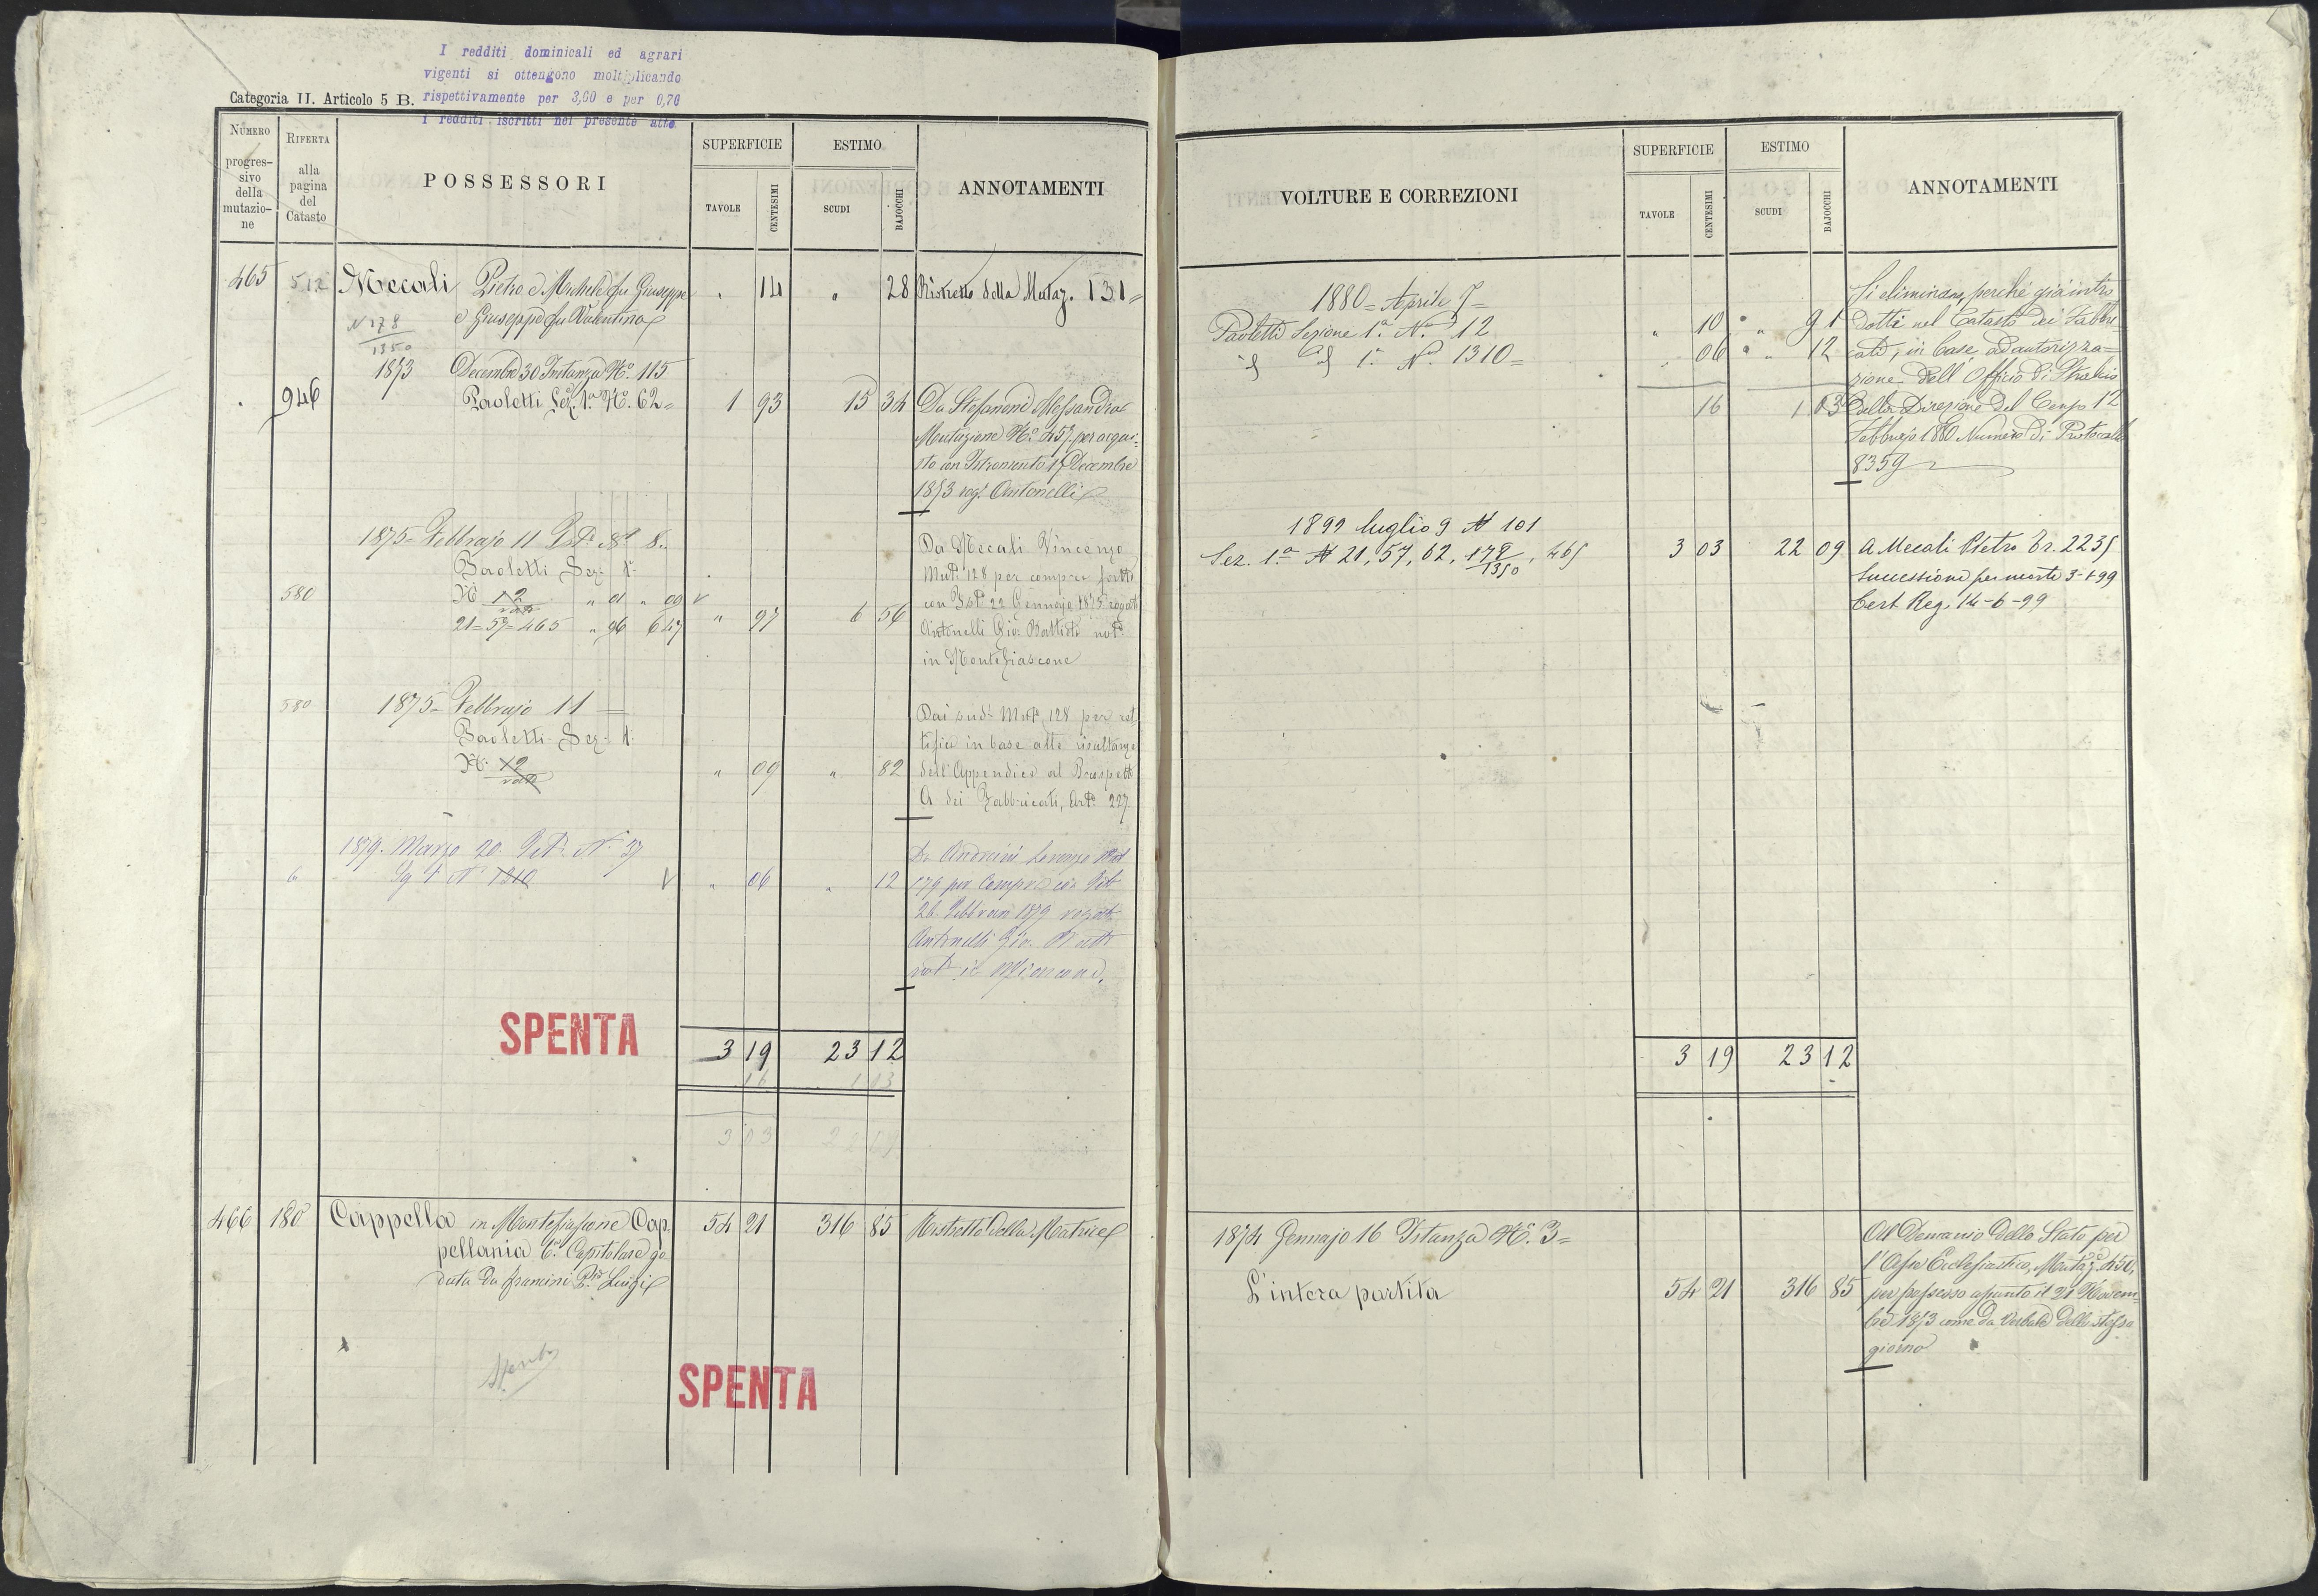 I redditi dominicali ed agrari
vigenti si ottengono moltiplicando
rispettivamente per 3,60 e per 0,70
i redditi iscritti nel presente atto
Categoria II. Articolo 5 B.
NUMERO progressivo della mutazione
RIFERTA alla pagina del Catasto
POSSESSORI
SUPERFICIE
TAVOLE
CENTESIMI
ESTIMO
SCUDI
BAJOCCHI
ANNOTAMENTI
465 512 Mecali Pietro e Michele fu Giuseppe " 14 " 28 Ristretto della Mutaz. 131=
e Giuseppe fu Valentino
N 178
1350
1873 Decembre 30 Instanza No. 115
946 Paoletti Sez. 1a No. 62= 1 93 15 34 Da Stefanoni Alessandro
Mutazione No. 457 per acqui=
sto con Istromento 17 Decembre
1873 rog. Antonelli
1875= Febbrajo 11 No. 8=
Paoletti Sez. 1a
580 No. 12 " 01 " 09 V
21=57=465 " 96 6 47 " 97 6 56
Da Mecali Vincenzo
Mut. 128 per compra fatta
con Ist. 22 Gennajo 1875 rogato
Antonelli Gio. Battista not.
in Montefiascone
580 1875= Febbrajo 11 =
Paoletti - Sez. 1a
No. 12 " 09 " 82
Dai sud. Mut. 128 per ret
tifica in base alle risultanze
dell'Appendice al Prospetto
A dei Fabbricati, Art. 227.
1879. Marzo 20. No. 37
6 1 No. 1310 V " 06 " 12
Da Andreini Lorenzo Mut
179 per Compra con Ist
26 Febbraio 1879 rogato
Antonelli Gio. Batt
not. in
SPENTA
3 19 23 12
16 1 03
3 03 22 09
466 180 Cappella in Montefiascone Cap= 54 21 316 85 Ristretto della Matrice
pellania 6a Capitolare go
duta da Luigi
Spenta
SPENTA
VOLTURE E CORREZIONI
SUPERFICIE
TAVOLE
CENTESIMI
ESTIMO
SCUDI
BAJOCCHI
ANNOTAMENTI
1880= Aprile 7=
Paoletti Sezione 1a. No. 12 " 10 " 91
1a No. 1310= " 06 " 12
16 1 03
Si eliminano, perché già intro
dotti nel Catasto dei Fabbri=
cati, in base ad autorizza=
zione dell'Officio di Stralcio
della Direzione del Censo 12
Febbrajo 1880 Numero di Protocollo
8359
1899 luglio 9 N 101
Sez. 1a N 21, 57, 62, 178/1350, 465 3 03 22 09 A Mecali Pietro Tr. 2235
Successione per morte 3-1-99
Cert. Reg. 14-6-99
3 19 23 12
1874 Gennajo 16 Istanza No. 3=
L'intera partita 54 21 316 85
Al Demanio dello Stato per
l'Asse Ecclesiastico, Mutaz. 450,
per possesso assunto il 21 Novem=
bre 1873 come da Verbale dello stesso
giorno